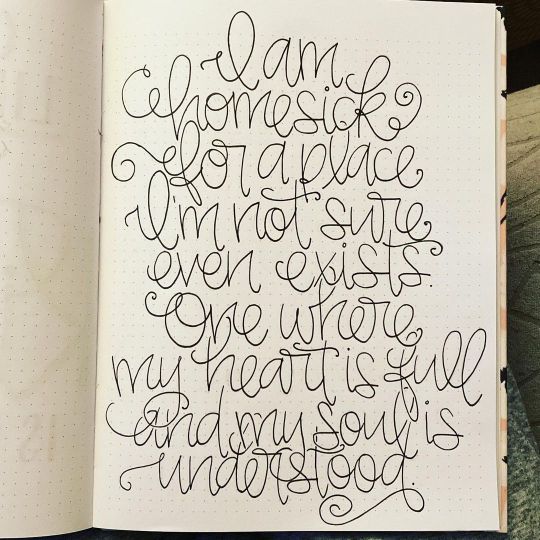 I am
homesick
for a place
I'm not sure
even exists.
One where
my heart is full
and my soul is
understood.